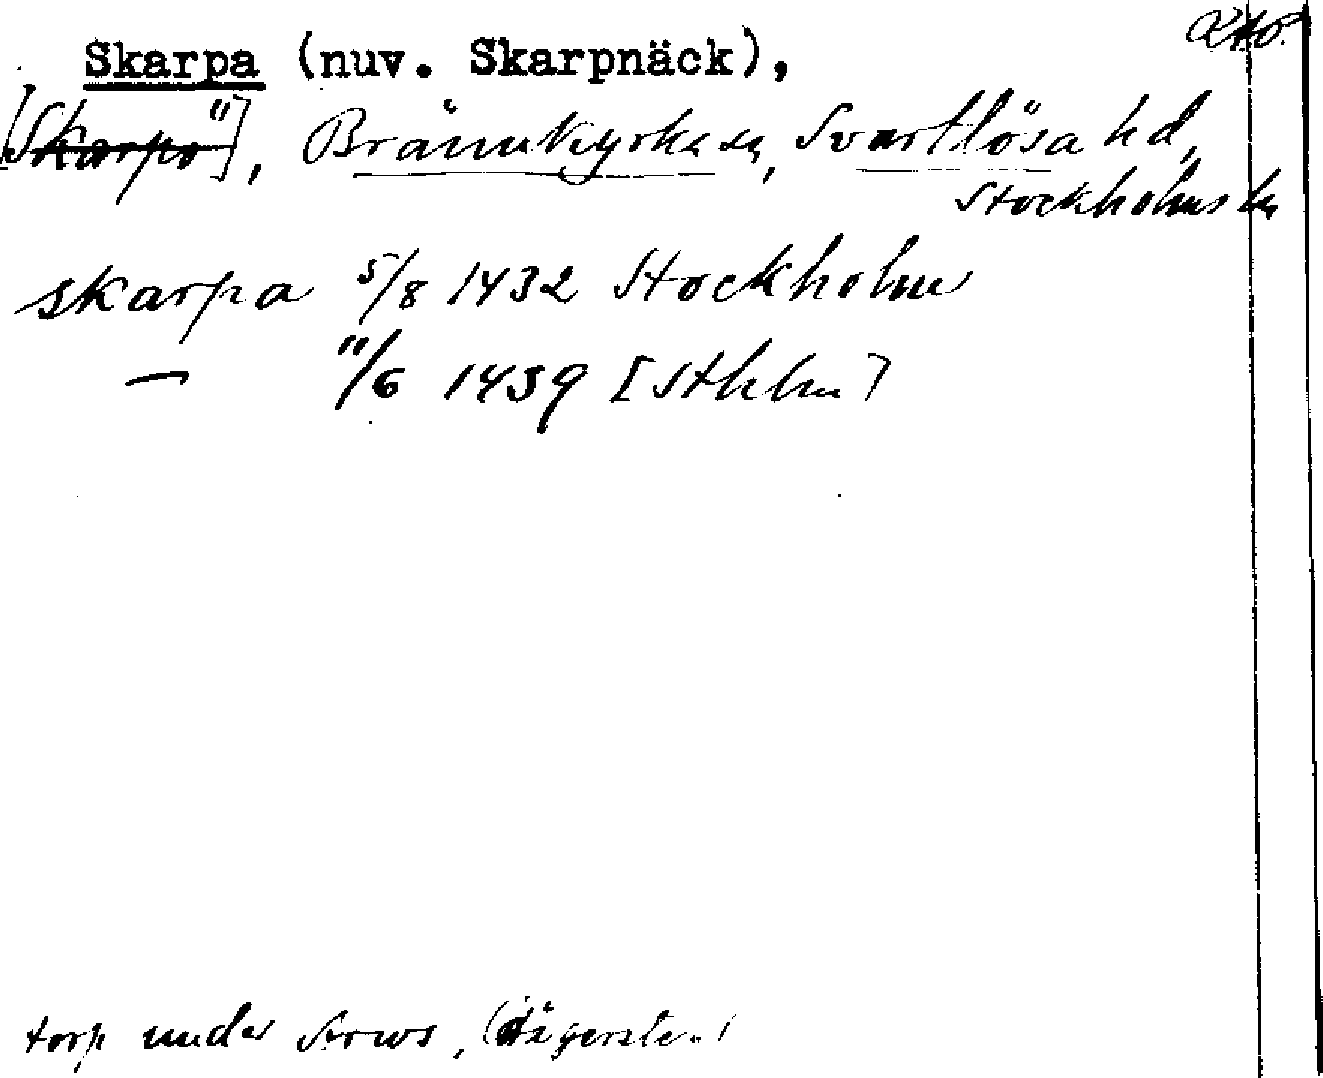 Skarpa (nuv. Skarpnäck),
[Skarpö], Brännkyrka sn, Svartlösa hd,
Stockholms ln
skarpa 5/8 1432 Stockholm
— 11/6 1459 [Sthlm]
torp under Årsta, (Hägersten)